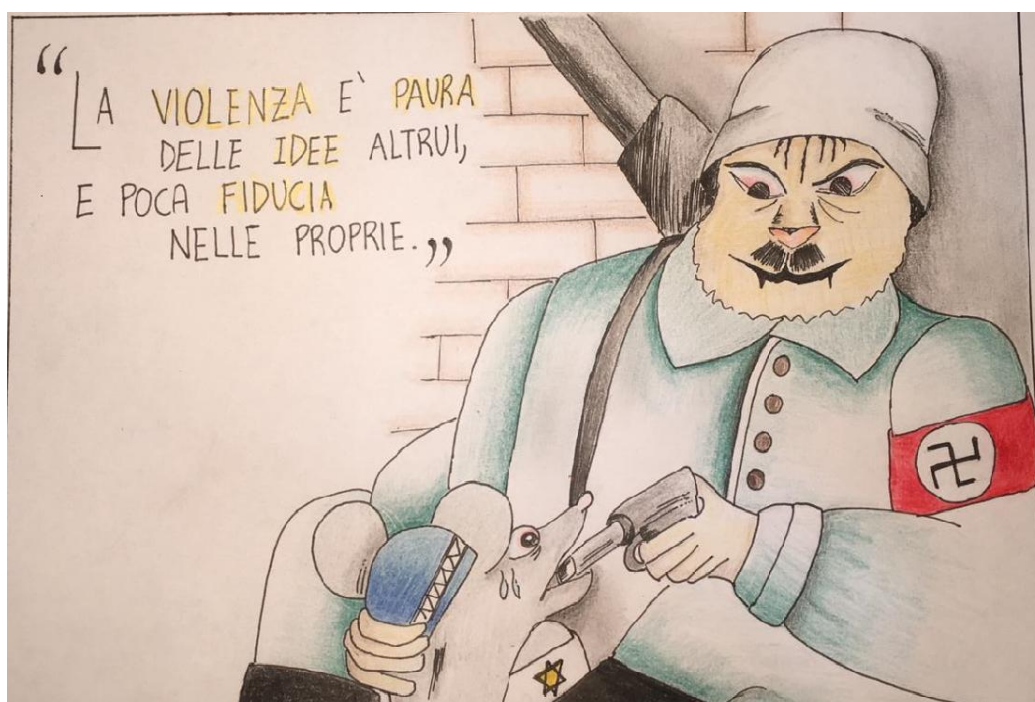 “LA VIOLENZA E` PAURA
DELLE IDEE ALTRUI,
E POCA FIDUCIA
NELLE PROPRIE.„